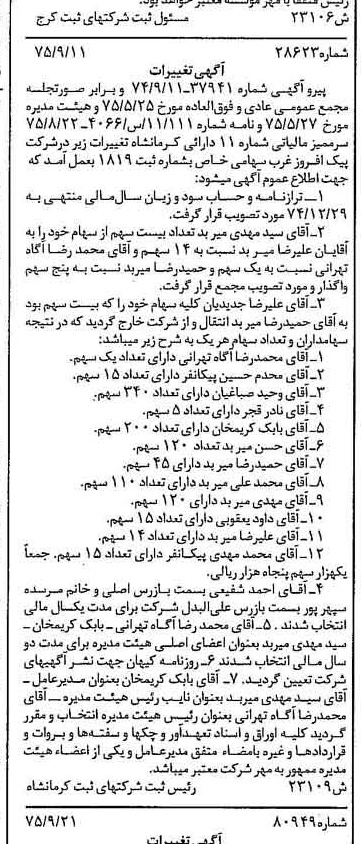 رئیس متفقاً با مهر مؤسسه معتبر خواهد بود.
ش۲۳۱۰۶ مسئول ثبت شرکتهای ثبت کرج
شماره۲۸۶۲۳ ۷۵/۹/۱۱
آگهی تغییرات
پیرو آگهی شماره ۳۷۹۴۱-۷۴/۹/۱۱ و برابر صورتجلسه
مجمع عمومی عادی و فوق‌العاده مورخ ۷۵/۵/۲۵ و هیئت مدیره
مورخ ۷۵/۵/۲۷ و نامه شماره ۱۱/۱۱۱/س/۴۰۶۶-۷۵/۸/۲۲
سرممیز مالیاتی شماره ۱۱ دارائی کرمانشاه تغییرات زیر درشرکت
پیک افروز غرب سهامی خاص بشماره ثبت ۱۸۱۹ بعمل آمد که
جهت اطلاع عموم آگهی میشود:
۱ـ ترازنامه و حساب سود و زیان سال مالی منتهی به
۷۴/۱۲/۲۹ مورد تصویب قرار گرفت.
۲ـ آقای سید مهدی میر بد تعداد بیست سهم از سهام خود را به
آقایان علیرضا میر بد نسبت به ۱۴ سهم و آقای محمد رضا آگاه
تهرانی نسبت به یک سهم و حمیدرضا میربد نسبت به پنج سهم
واگذار و مورد تصویب مجمع قرار گرفت.
۳ـ آقای علیرضا جدیدیان کلیه سهام خود را که بیست سهم بود
به آقای حمیدرضا میر بد انتقال و از شرکت خارج گردید که در نتیجه
سهامداران و تعداد سهام هر یک به شرح زیر میباشد:
۱ـ آقای محمدرضا آگاه تهرانی دارای تعداد یک سهم.
۲ـ آقای محدم حسین پیکانفر دارای تعداد ۱۵ سهم.
۳ـ آقای وحید صباغیان دارای تعداد ۳۴۰ سهم.
۴ـ آقای نادر قجر دارای تعداد ۵ سهم.
۵ـ آقای بابک کریمخان دارای تعداد ۲۰۰ سهم.
۶ـ آقای حسن میر بد تعداد ۱۲۰ سهم.
۷ـ آقای حمیدرضا میر بد دارای ۴۵ سهم.
۸ـ آقای محمد علی میر بد دارای تعداد ۱۱۰ سهم.
۹ـ آقای مهدی میر بد دارای ۱۲۰ سهم.
۱۰ـ آقای داود یعقوبی دارای تعداد ۱۵ سهم.
۱۱ـ آقای علیرضا میر بد دارای تعداد ۱۴ سهم.
۱۲ـ آقای محمد مهدی پیکانفر دارای تعداد ۱۵ سهم. جمعاً
یکهزار سهم پنجاه هزار ریالی.
۴ـ آقای احمد شفیعی بسمت بازرس اصلی و خانم مرسده
سپهر پور بسمت بازرس علی‌البدل شرکت برای مدت یکسال مالی
انتخاب شدند. ۵ـ آقای محمد رضا آگاه تهرانی ـ بابک کریمخان ـ
سید مهدی میربد بعنوان اعضای اصلی هیئت مدیره برای مدت دو
سال مالی انتخاب شدند ۶ـ روزنامه کیهان جهت نشر آگهیهای
شرکت تعیین گردید. ۷ـ آقای بابک کریمخان بعنوان مدیرعامل ـ
آقای سید مهدی میربد بعنوان نایب رئیس هیئت مدیره ـ آقای
محمدرضا آگاه تهرانی بعنوان رئیس هیئت مدیره انتخاب و مقرر
گردید کلیه اوراق و اسناد تعهدآور و چکها و سفته‌ها و بروات و
قراردادها و غیره بامضاء متفق مدیرعامل و یکی از اعضاء هیئت
مدیره ممهور به مهر شرکت معتبر میباشد.
ش۲۳۱۰۹ رئیس ثبت شرکتهای ثبت کرمانشاه
شماره۸۰۹۴۹ ۷۵/۹/۲۱
آگهی تغییرات